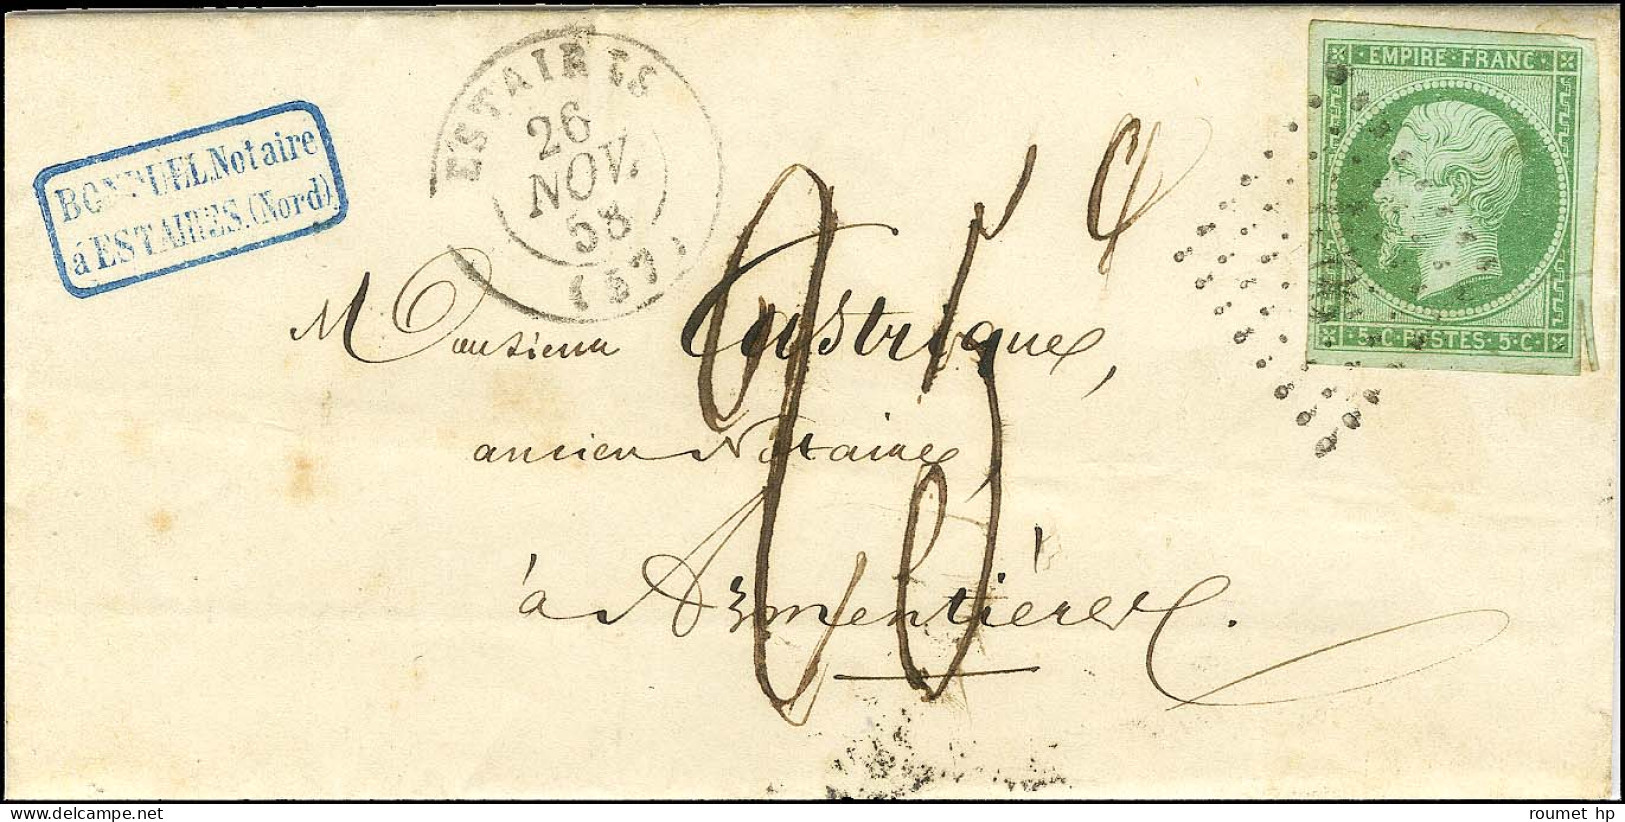 BONDUEL, Notaire
à ESTAIRES. (Nord)
ESTAIRES
26
NOV.
58
(57)
25 c
EMPIRE · FRANC ·
· 5 · C · POSTES · 5 · C ·
Monsieur Castrique,
ancien Notaire,
à Armentières.
roumet hp